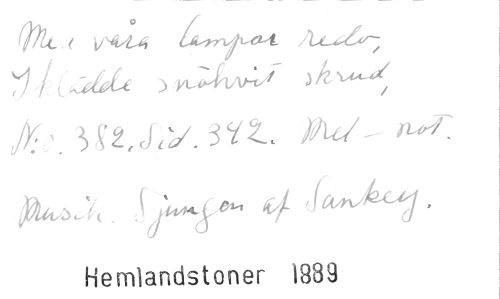 Med våra lampor redo,
Iklädde snöhvit skrud,
N:o. 382. Sid. 342. Mel - not.
Musik. Sjungen af Sankey.
Hemlandstoner 1889